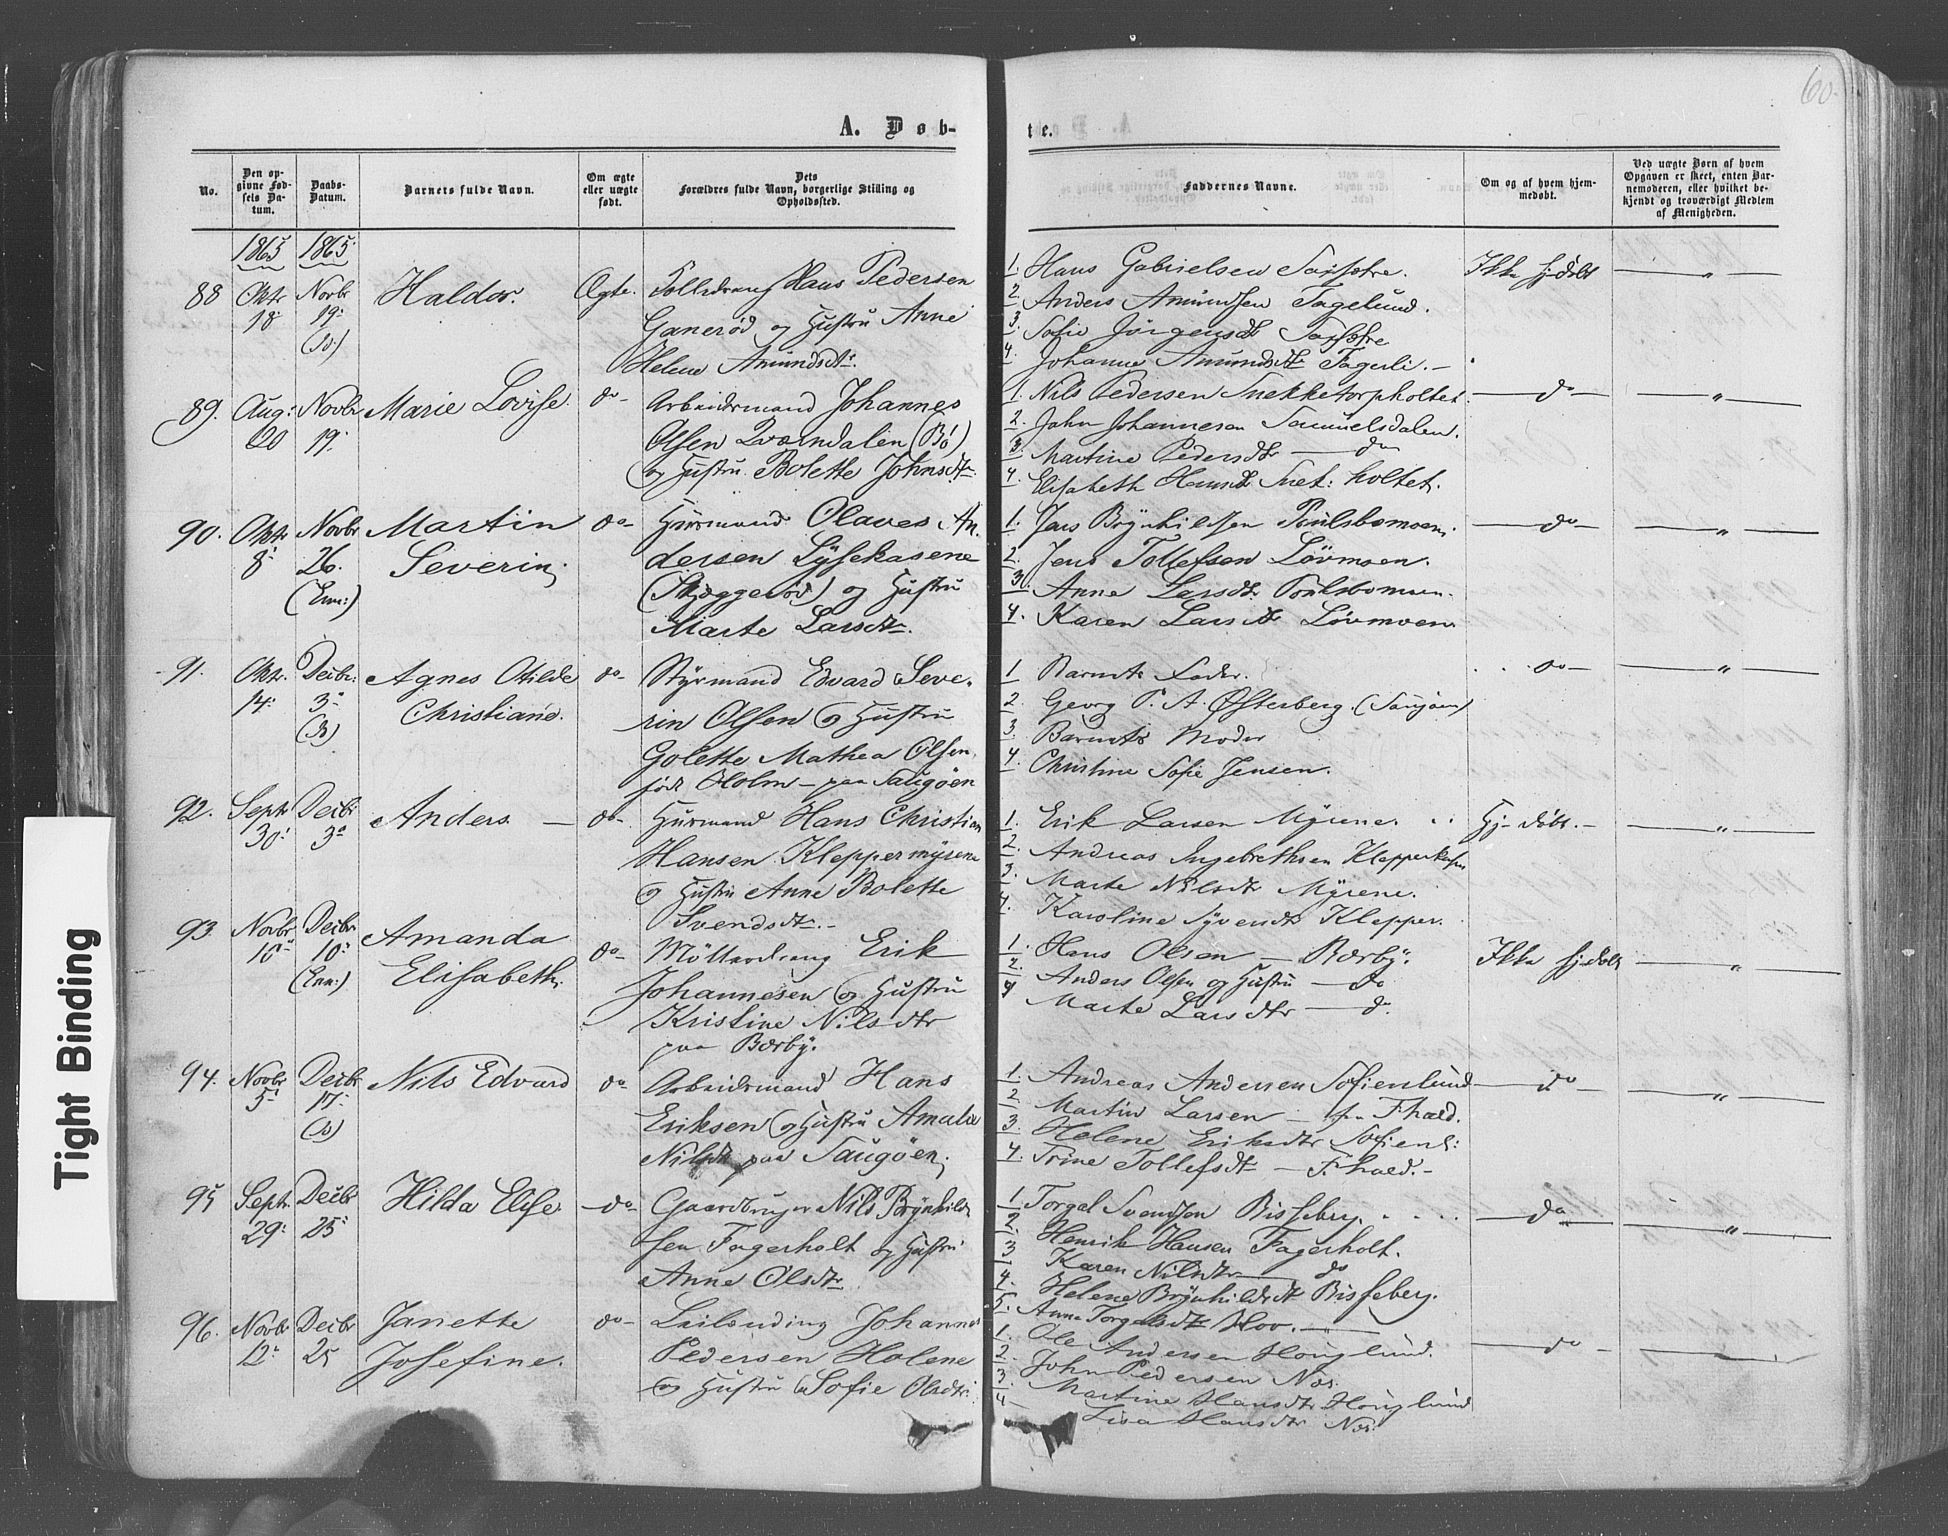 60.
A. Døb-
te.
No.
Den opgivne Fødsels Datum.
Daabs-Datum.
Barnets fulde Navn.
Om ægte eller uægte født.
Dets Forældres fulde Navn, borgerlige Stilling og Opholdssted.
Faddernes Navne.
Om og af hvem hjemmedøbt.
Ved uægte Børn af hvem Opgaven er skeet, enten Barnemoderen, eller hvilket bekjendt og troværdigt Medlem af Menigheden.
1865 1865
88 Oktr 18 Novbr 19: Haldor. Ægte.
Hans Pedersen
Ganerød og Hustru Anne
Helene Amundsdtr.
1. Hans Gabrielsen
2. Anders Amundsen Fagelund.
3. Sofie Jörgensdtr
4. Johanne Amundsdtr Fagerli.
Ikke hj.døbt — „ —
89. Aug: 20 Novbr 19: Marie Lovise. do-
Arbeidsmand Johannes
Olsen Qværndalen (Bö)
og Hustru Bolette Johnsdtr
1. Nils Pedersen Snekketorpholtet.
2. John Johannesen Samuelsdalen.
3. Martine Pedersdtr — do
4. Elisabeth Hansdtr Snek: holtet.
— do — — „ —
90. Oktr 8: Novbr 26. (Enn:) Martin
Severin, do-
Huusmand Olaves An-
dersen Lysekasene
(Skjæggerød) og Hustru
Marte Larsdtr.
1. Lars Brynhildsen Poulsbomoen.
2. Jens Tollefsen Lövmoen.
3. Anne Larsdtr Poulsbomoen.
4. Karen Larsdtr Lövmoen.
— do — — „ —
91. Oktr. 14: Decbr: 3: Agnes Otilde
Christiane. do-
Styrmand Edvard Seve-
rin Olsen og Hustru
Golette Mathea Olsen,
født Holm — paa Saugøen
1 Barnets Fader.
2. Georg P. A. Østerberg. (Saugøen)
3. Barnets Moder
4. Christine Sofie Jensen.
do — — „ —
92. Septr 30: Decbr 3: Anders. — do-
Huusmand Hans Christian
Hansen Kleppermyrene
og Hustru Anne Bolette
Svendsdtr.
1. Erik Larsen Myrene.
2. Andreas Ingebrethsen
3. Marte Nilsdtr Myrene.
4. Karoline Syvendtr Klepper.
Hj- døbt. — „ —
93. Novbr 10: Decbr 10: (Enn:) Amanda
Elisabeth, do-
Möllerdreng Erik
Johannesen og Hustru
Kristine Nilsdtr
paa Bærby.
1. Hans Olsen — Bærby.
2. Anders Olsen og Hustru — do
4 Marte Larsdtr — do.
Ikke hj.døbt — „ —
94. Novbr 5: Decbr 17: Nils Edvard do
Arbeidsmand Hans
Eriksen og Hustru Amalie
Nilsdtr paa Saugöen,
1. Andreas Andersen Sofienlund
2. Martin Larsen — Fhald.
3. Helene Eriksdtr Sofienl:
4. Trine Tollefsdtr — F.hald.
— do — — „ —
95 Septr. 29: Decbr 25: Hilda Elise — do-
Gaardbruger Nils Brynhild-
sen Fagerholt og Hustru
Anne Olsdtr
1. Torgel Svendsen Bisseberg.
2. Henrik Hansen Fagerholt.
3 Karen Nilsdtr — do
4. Helene Brynhildsdtr Bisseberg.
5. Anne Torgelsdtr Hov.
— do — — „ —
96. Novbr 12: Decbr 25 Janette
Josefine. do-
Leilænding Johannes
Pedersen Holene
og Hustru Sofie Olsdtr.
1. Ole Andersen Höuglund.
2. John Pedersen Næs.
3. Martine Hansdtr Höuglund
4 Lisa Hansdtr Næs.
— do —
Tight Binding